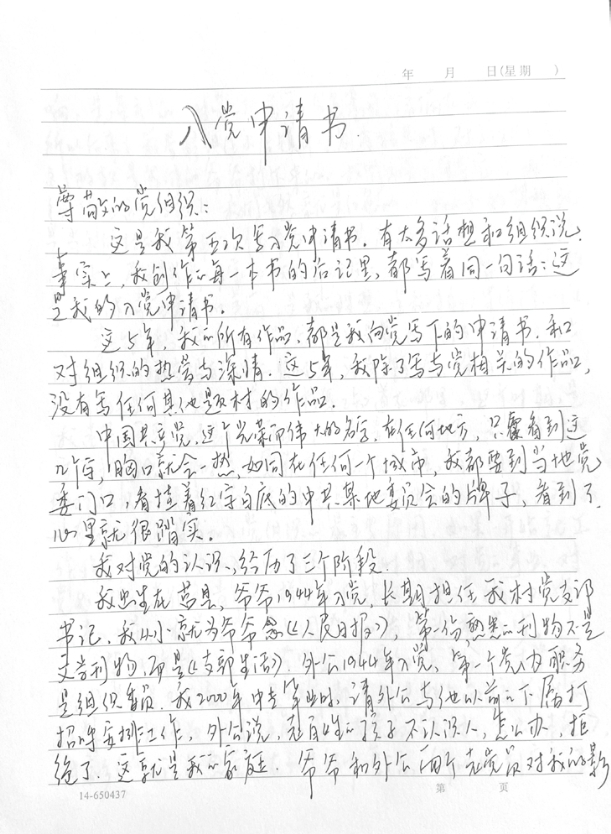 年 月 日(星期 )
入党申请书.
尊敬的党组织:
这是我第五次写入党申请书.有太多话想和组织说.
事实上,我创作的每一本书的后记里,都写着同一句话:这
是我的入党申请书.
这5年,我的所有作品,都是我向党写下的申请书.和
对组织的热爱与深情.这5年,我除了写与党相关的作品,
没有写任何其他题材的作品.
中国共产党,这个光荣而伟大的名字,在任何地方,只要看到这
几个字,胸口就会一热,如同在任何一个城市,我都要到当地党
委门口,看挂着红字白底的中共某地委员会的牌子,看到了,
心里就很踏实.
我对党的认识,经历了三个阶段
我出生在莒县,爷爷1944年入党,长期担任我村党支部
书记.我从小就为爷爷念《人民日报》,第一份熟悉的刊物不是
文学刊物,而是《支部生活》.外公1944年入党,第一个党内职务
是组织委员.我2000年中专毕业时,请外公与他以前的下属打
招呼安排工作,外公说,老百姓的孩子不认识人,怎么办,拒
绝了.这就是我的家庭.爷爷和外公两个老党员对我的影
14-650437
第 页